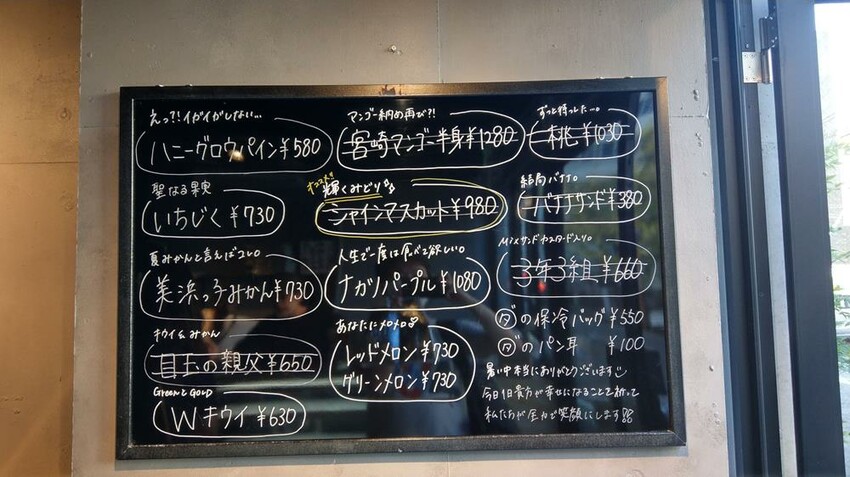 えっ?!イガイガしない...
ハニーグロウパイン¥580
聖なる果実
いちじく¥730
夏みかんと言えばコレ○
美浜っ子みかん¥730
キウイ&みかん
目玉の親父¥650
GreenとGold
Wキウイ¥630
マンゴー納め再び?!
宮崎マンゴー半身¥1280
オススメ!!
輝くみどり
シャインマスカット¥980
人生で一度は食べて欲しい。
ナガノパープル¥1080
あなたにメロメロ♡
レッドメロン¥730
グリーンメロン¥730
ずっと待ってた...。
白桃¥1030
結局バナナ。
バナナサンド¥380
Mixサンドカスタード入り。
3年3組¥660
ダの保冷バッグ ¥550
ダのパン耳 ¥100
暑い中本当にありがとうございます
今日1日貴方が幸せになることを祈って
私たちが全力で笑顔にします!!